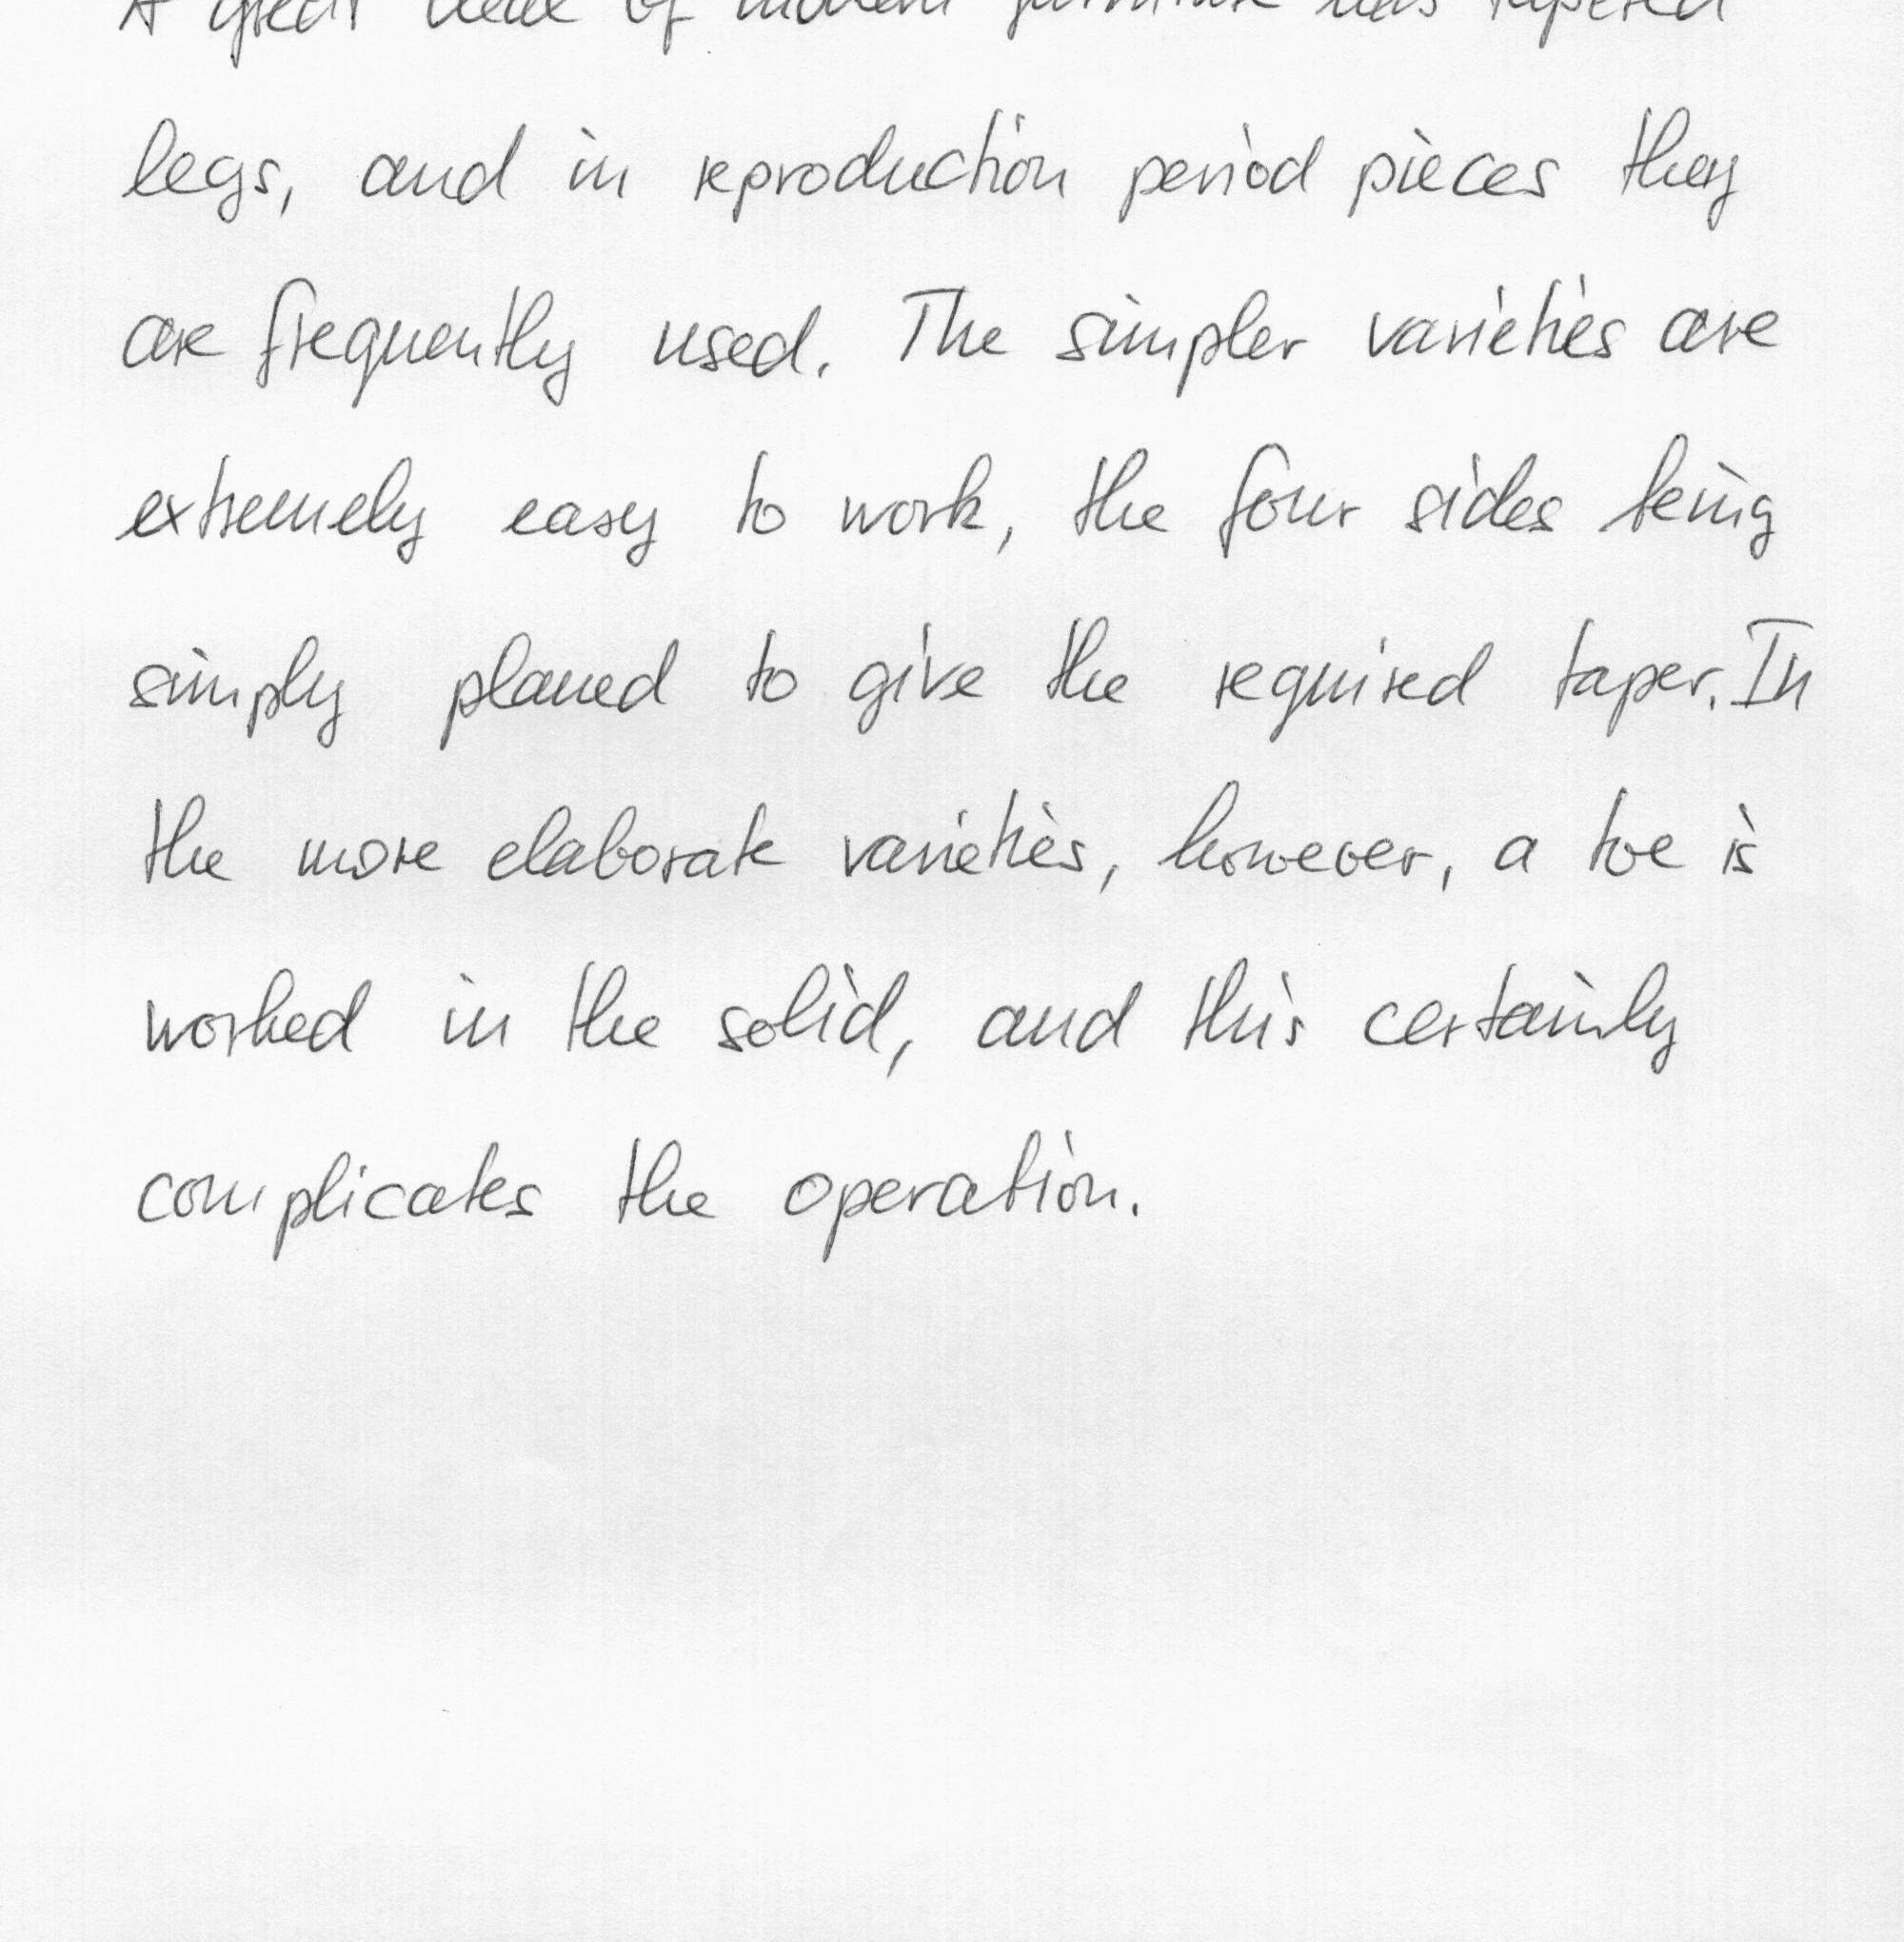 A great deal of modern furniture has tapered
legs, and in reproduction period pieces they
are frequently used. The simpler varieties are
extremely easy to work, the four sides being
simply planed to give the required taper. In
the more elaborate varieties, however, a toe is
worked in the solid, and this certainly
complicates the operation.